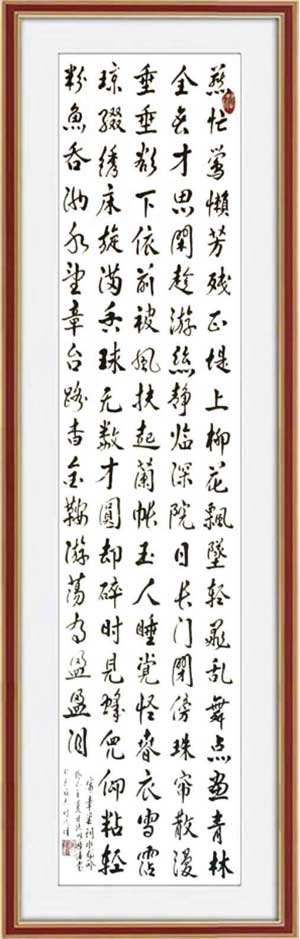 燕忙莺懒芳残正堤上柳花飘墜轻飛乱舞点画青林
全無才思閑趁游絲静临深院日长门闭傍珠帘散漫
垂垂欲下依前被風扶起蘭帐玉人睡觉怪春衣雪霑
琼缀绣床旋满香球无数才圓却碎时見蜂兒仰粘轻
粉魚吞池水望章台路杳金鞍游荡有盈盈泪
章楶词水龙吟